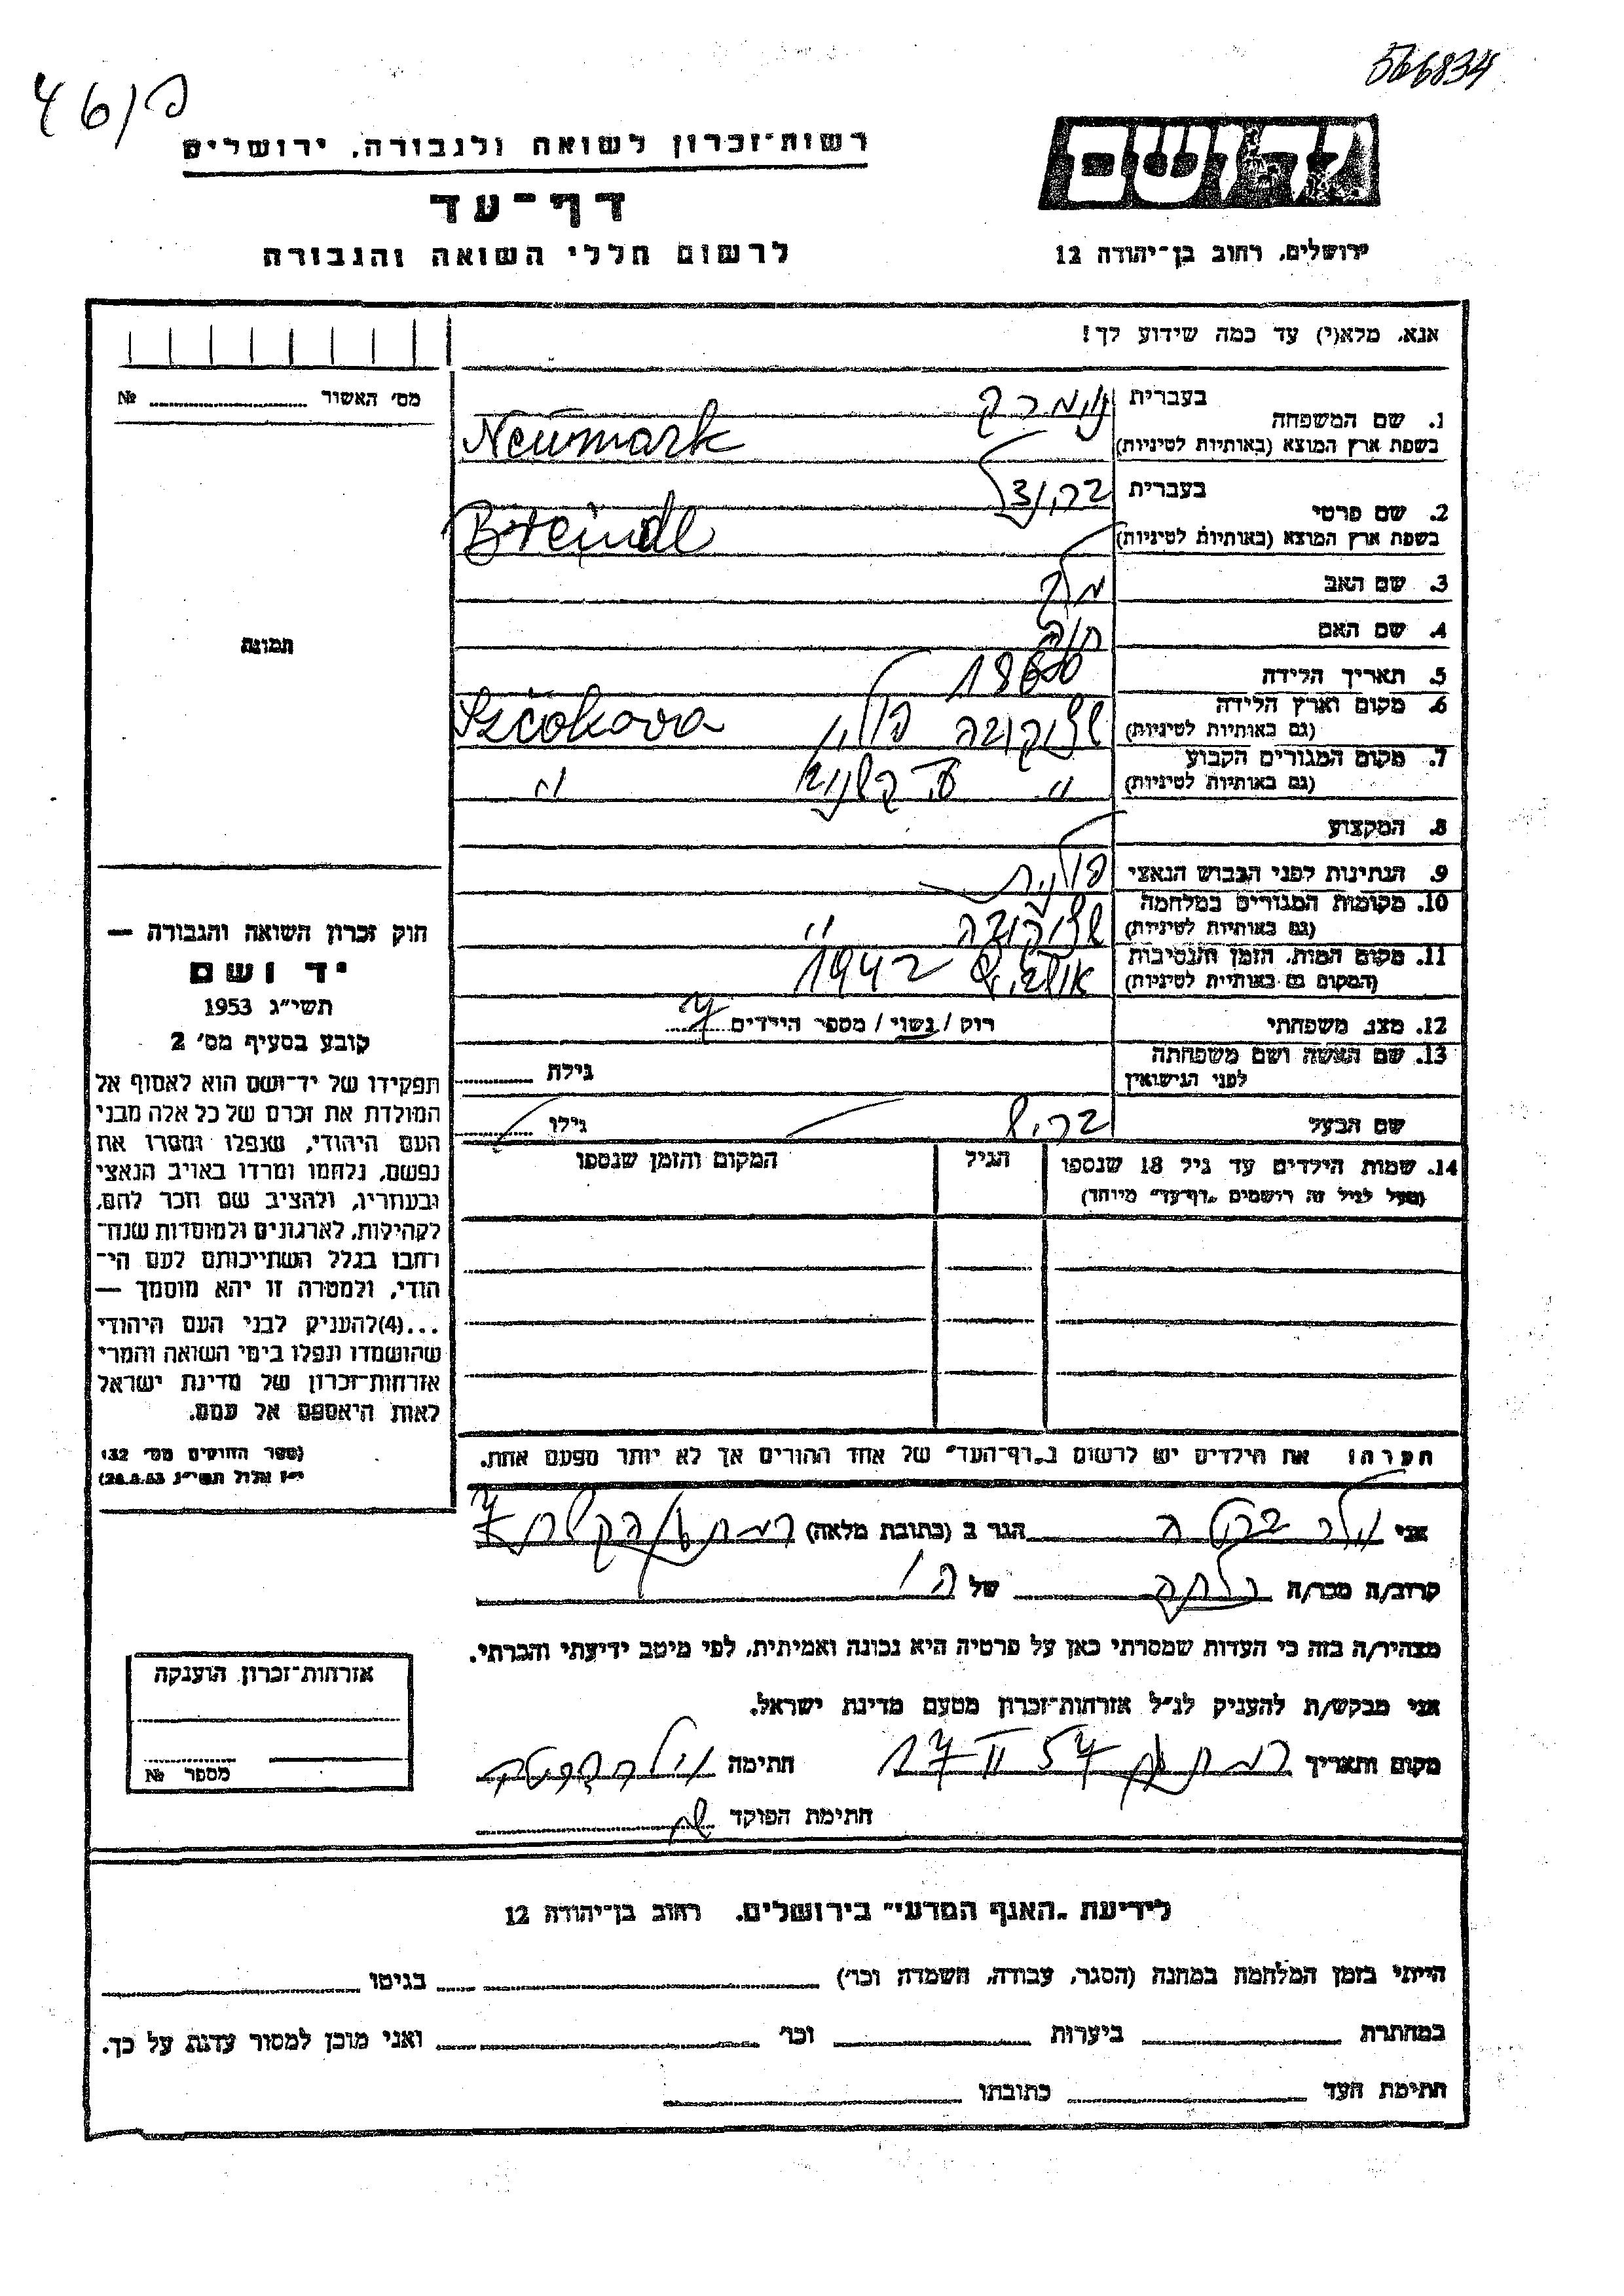 566834
46/פ
רשות־זכרון לשואה ולגבורה, ירושלים
דף־עד
לרשום חללי השואה והגבורה
יד ושם
ירושלים, רחוב בן־יהודה 12
אנא, מלא(י) עד כמה שידוע לך!
מס׳ האשור № 
1. שם המשפחה
בעברית נוימרק
בשפת ארץ המוצא (באותיות לטיניות) Neumark
2. שם פרטי
בעברית בריינדל
בשפת ארץ המוצא (באותיות לטיניות) Breindl
3. שם האב
4. שם האם חוה
5. תאריך הלידה 1860
6. מקום וארץ הלידה (גם באותיות לטיניות) פולין Szczakova
7. מקום המגורים הקבוע (גם באותיות לטיניות) " "
8. המקצוע
9. הנתינות לפני הכבוש הנאצי פולנית
10. מקומות המגורים במלחמה (גם באותיות לטיניות) "
11. מקום המות, הזמן והנסיבות (המקום גם באותיות לטיניות) 1942
12. מצב משפחתי רוק / נשוי / מספר הילדים 7
13. שם האשה ושם משפחתה לפני הנישואין גילה
שם הבעל גילו
14. שמות הילדים עד גיל 18 שנספו (מעל לגיל זה רושמים „דף־עד” מיוחד)
הגיל
המקום והזמן שנספו
הערה: את הילדים יש לרשום ב„דף־העד” של אחד ההורים אך לא יותר מפעם אחת.
תמונה
חוק זכרון השואה והגבורה —
יד ושם
תשי״ג 1953
קובע בסעיף מס׳ 2
תפקידו של יד־ושם הוא לאסוף אל
המולדת את זכרם של כל אלה מבני
העם היהודי, שנפלו ומסרו את
נפשם, נלחמו ומרדו באויב הנאצי
ובעוזריו, ולהציב שם וזכר להם,
לקהילות, לארגונים ולמוסדות שנח־
רבו בגלל השתייכותם לעם הי־
הודי, ולמטרה זו יהא מוסמך —
...(4) להעניק לבני העם היהודי
שהושמדו ונפלו בימי השואה והמרי
אזרחות־זכרון של מדינת ישראל
לאות היאספם אל עמם.
(ספר החוקים מס׳ 132,
י״ז אלול תשי״ג 28.8.53)
אני הגר ב (כתובת מלאה) רמת גן
קרוב/ה מכר/ה של
מצהיר/ה בזה כי העדות שמסרתי כאן על פרטיה היא נכונה ואמיתית, לפי מיטב ידיעתי והכרתי.
אני מבקש/ת להעניק לנ״ל אזרחות־זכרון מטעם מדינת ישראל.
מקום ותאריך רמת גן 17 II 57 חתימה
חתימת הפוקד
אזרחות־זכרון הוענקה
מספר №
לידיעת „האגף המדעי” בירושלים, רחוב בן־יהודה 12
הייתי בזמן המלחמה במחנה (הסגר, עבודה, השמדה וכו׳) בגיטו
במחתרת ביערות וכו׳ ואני מוכן למסור עדות על כך.
חתימת העד כתובתו